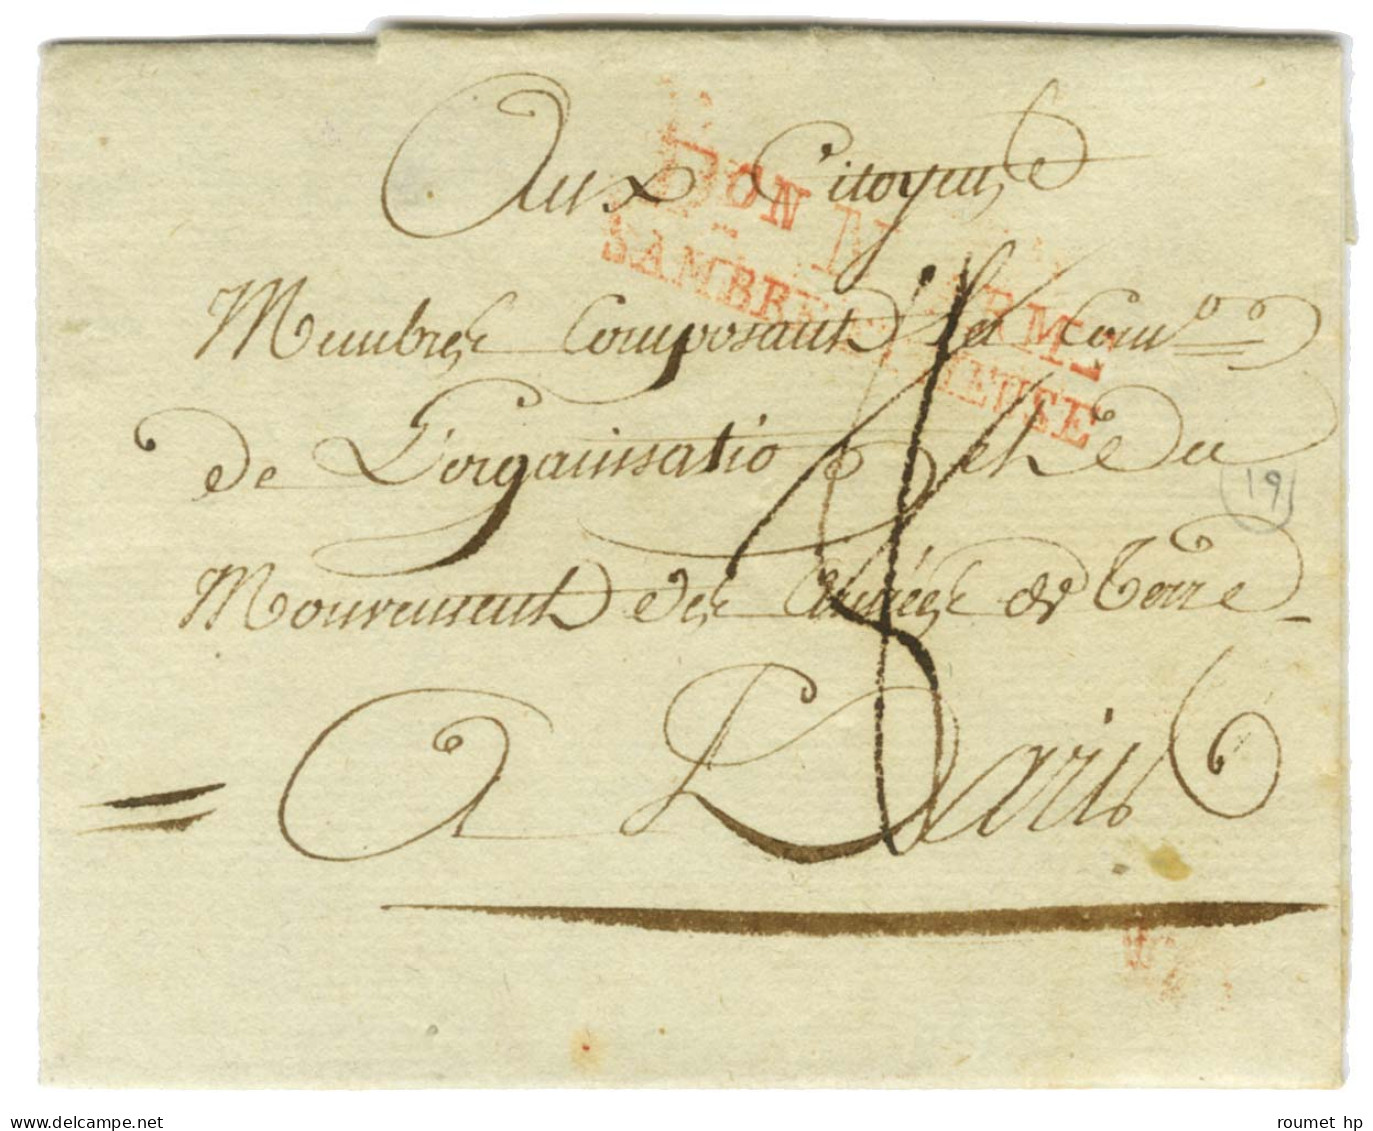 Aux Citoyens
Membres Composant la Comon
de L'organisatio et du
Mouvement des Armées de Terre
A Paris
DON N ARM
SAMBRE ET MEUSE
19
www.delcampe.net
roumet hp